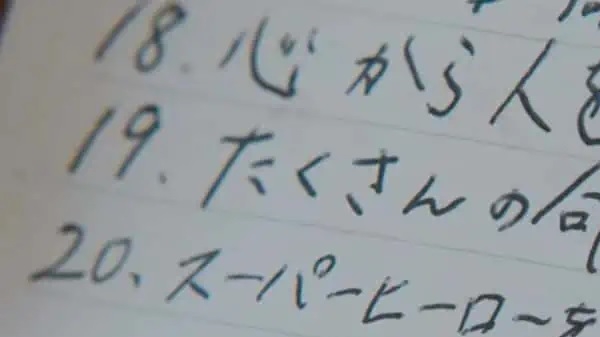 18. 心から人を
19. たくさんの命
20、スーパーヒーローを